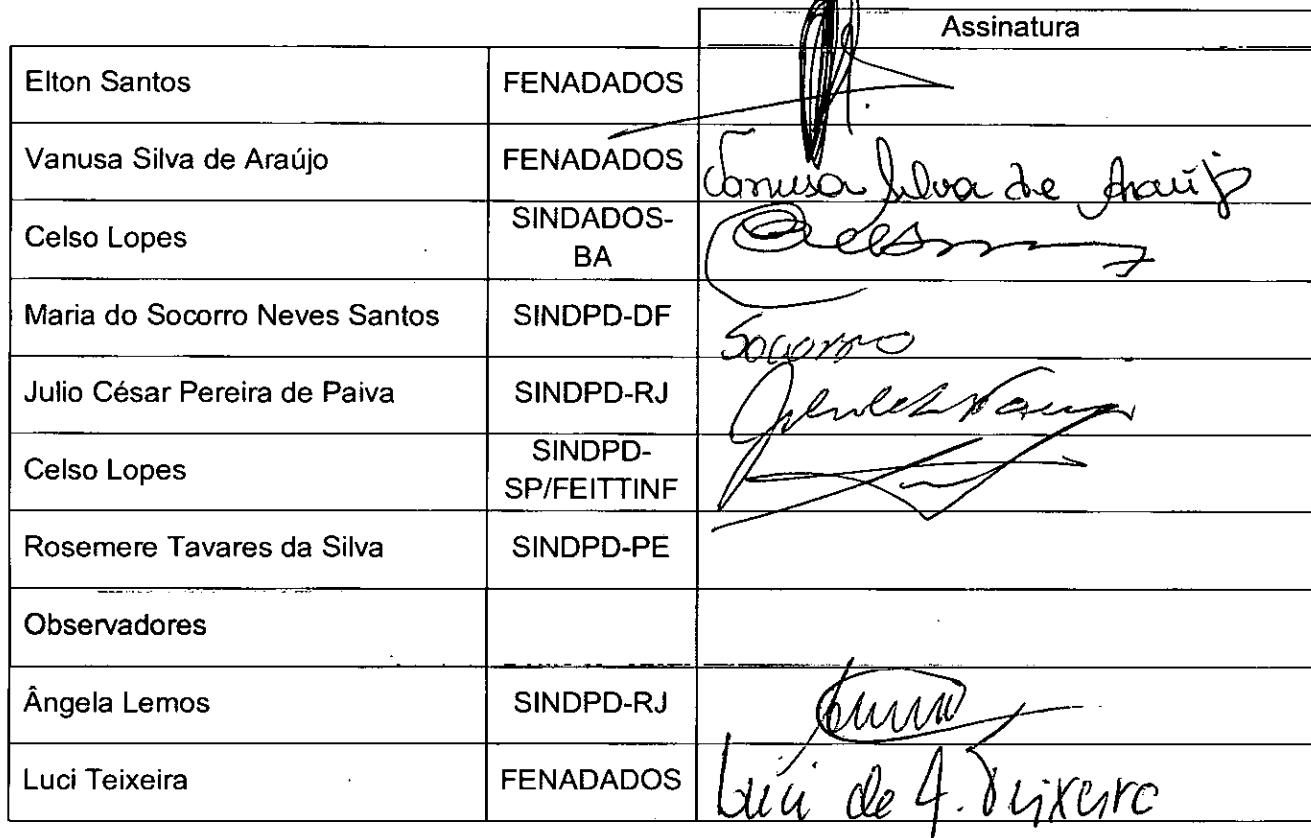 Assinatura
Elton Santos FENADADOS
Vanusa Silva de Araújo FENADADOS Vanusa Silva de Araújo
Celso Lopes SINDADOS-
BA
Maria do Socorro Neves Santos SINDPD-DF Socorro
Julio César Pereira de Paiva SINDPD-RJ
Celso Lopes SINDPD-
SP/FEITTINF
Rosemere Tavares da Silva SINDPD-PE
Observadores
Ângela Lemos SINDPD-RJ
Luci Teixeira FENADADOS Luci de A. Teixeira